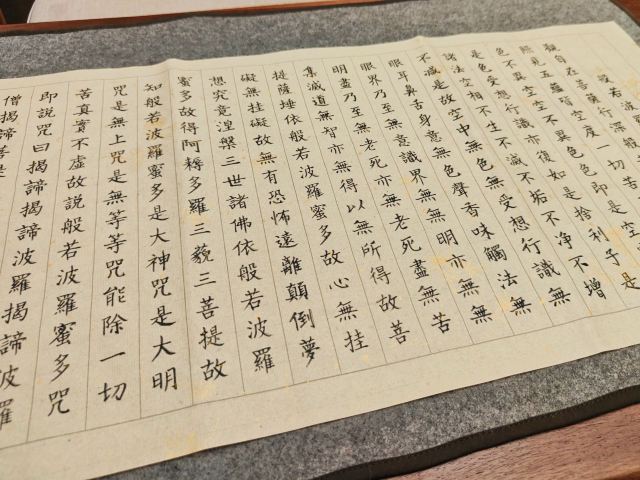 般若波
觀自在菩薩行深般
照見五蘊皆空度一切苦
色不異空空不異色色即是空
是色受想行識亦復如是捨利子是
諸法空相不生不滅不垢不净不增
不減是故空中無色無受想行識無
眼耳鼻舌身意無色聲香味觸法無
眼界乃至無意識界無無明亦無無
明盡乃至無老死亦無老死盡無苦
集滅道無智亦無得以無所得故菩
提薩埵依般若波羅蜜多故心無挂
礙無挂礙故無有恐怖遠離顛倒夢
想究竟涅槃三世諸佛依般若波羅
蜜多故得阿耨多羅三藐三菩提故
知般若波羅蜜多是大神咒是大明
咒是無上咒是無等等咒能除一切
苦真實不虛故說般若波羅蜜多咒
即說咒曰揭諦揭諦波羅揭諦波羅
僧揭諦菩提